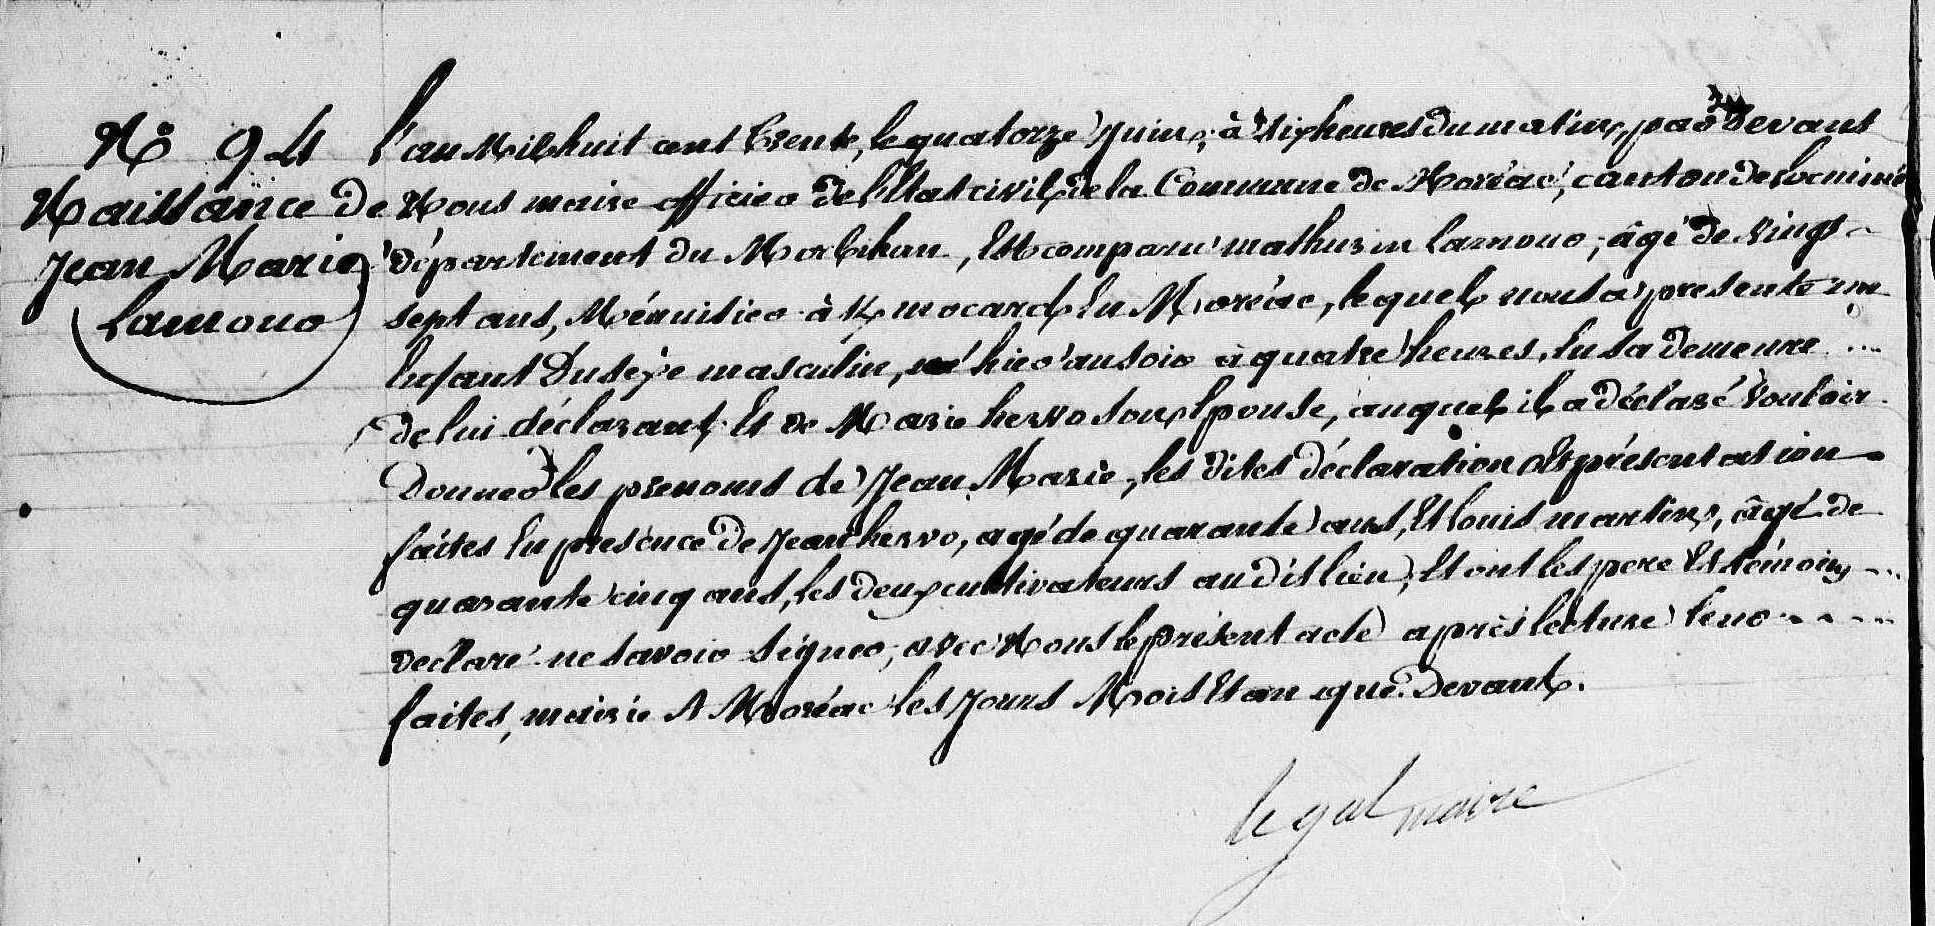 N° 94
Naissance de
Jean Marie
Lamouo
L'an Mil huit cent trente, le quatorze Juin, à six heures du matin, par Devant
Nous maire officier de l'Etat civil de la Commune de Moréac, canton de Locminé
département du Morbihan, Est comparu mathurin Lamouo, âgé de vingt-
sept ans, Ménuisier à K/mocard En Moréac, lequel nous a présenté un
Enfant Du sexe masculin, né hier au soir à quatre heures, En sa demeure ...
de lui déclarant, Et de Marie hervo son Epouse, auquel il a déclaré Vouloir
Donner les prenoms de Jean Marie, les dites déclaration Et présentation
faites En présence de Jean hervo, agé de quarante ans, Et louis martin, âgé de
quarante cinq ans, les deux cultivateurs au dit lieu, Et ont les pere Et témoins ...
declaré ne savoir signer, avec Nous le présent acte après lecture Leur ....
faites, mairie A Moréac les Jours Mois Et an que Devant.
le gal maire